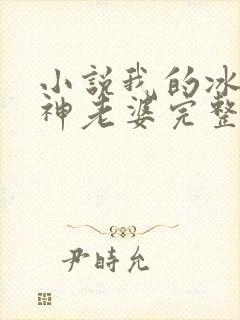 小説我的冰
神老婆完整
尹時允